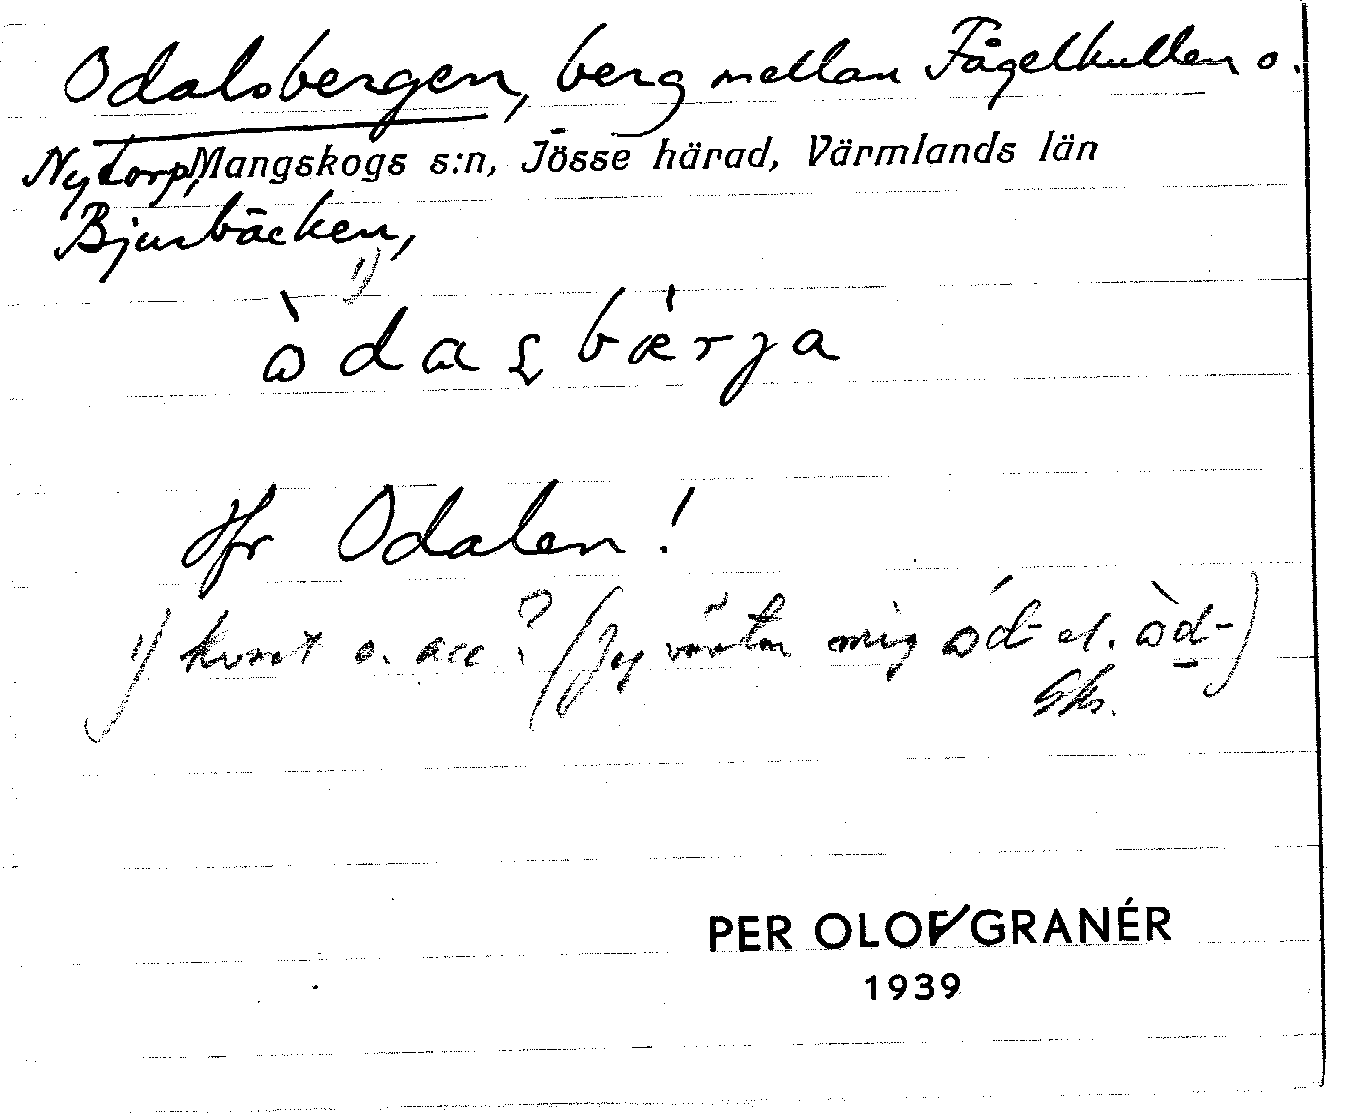 Odalsbergen, berg mellan Fågelkullen o.
Nytorp, Mangskogs s:n, Jösse härad, Värmlands län
Bjurbäcken,
1)
òdasbærja
Jfr Odalen!
1) kvant o. acc? (Jag väntar mig ód- el. òd-)
PER OLOF GRANÉR
1939